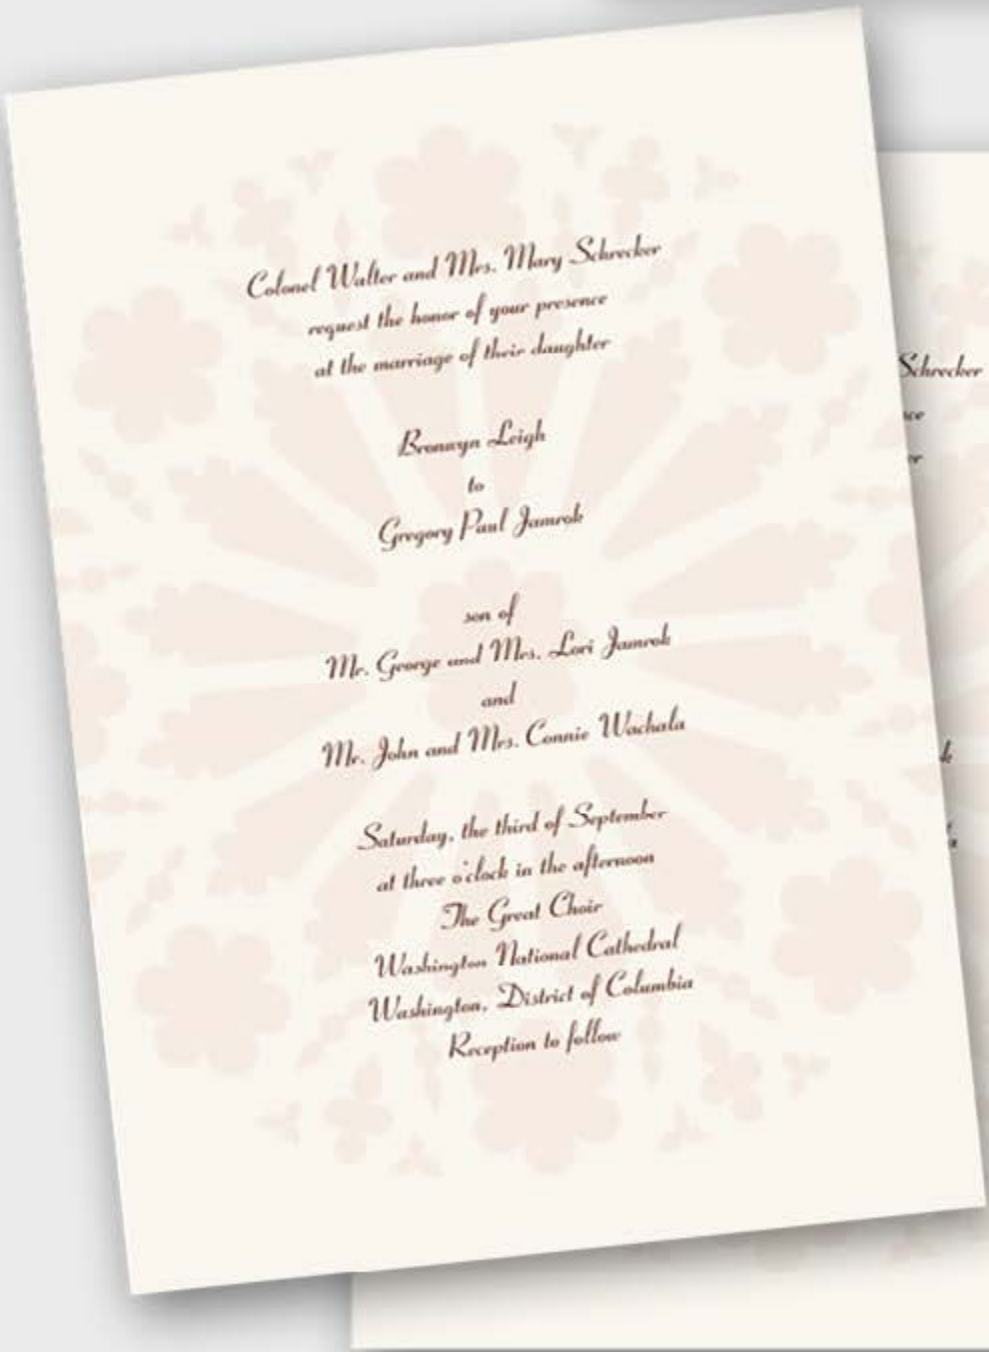 Colonel Walter and Mrs. Mary Schrecker
request the honor of your presence
at the marriage of their daughter
Bronwyn Leigh
to
Gregory Paul Jamrok
son of
Mr. George and Mrs. Lori Jamrok
and
Mr. John and Mrs. Connie Wachala
Saturday, the third of September
at three o'clock in the afternoon
The Great Choir
Washington National Cathedral
Washington, District of Columbia
Reception to follow
Schrecker